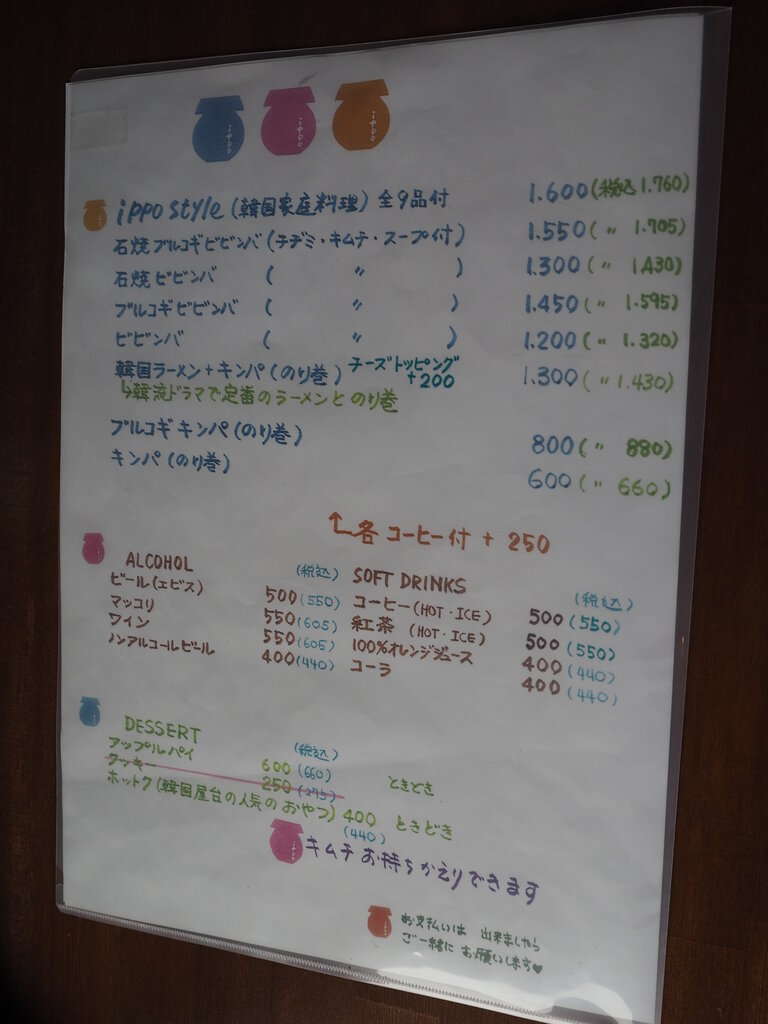 ippo ippo ippo
ippo style (韓国家庭料理) 全9品付 1.600(税込 1.760)
石焼ブルコギビビンバ (チヂミ・キムチ・スープ付) 1.550 ( 〃 1.705)
石焼ビビンバ ( 〃 ) 1.300 ( 〃 1.430)
ブルコギビビンバ ( 〃 ) 1.450 ( 〃 1.595)
ビビンバ ( 〃 ) 1.200 ( 〃 1.320)
韓国ラーメン+キンパ (のり巻) チーズトッピング +200 1.300 ( 〃 1.430)
↳韓流ドラマで定番のラーメンと のり巻
ブルコギ キンパ (のり巻) 800 ( 〃 880)
キンパ (のり巻) 600 ( 〃 660)
各 コーヒー付 + 250
ALCOHOL (税込)
ビール (エビス) 500 (550)
マッコリ 550 (605)
ワイン 550 (605)
ノンアルコールビール 400 (440)
SOFT DRINKS (税込)
コーヒー (HOT・ICE) 500 (550)
紅茶 (HOT・ICE) 500 (550)
100%オレンジジュース 400 (440)
コーラ 400 (440)
DESSERT (税込)
アップルパイ 600 (660) ときどき
クッキー 250 (275)
ホットク (韓国屋台の人気の おやつ) 400 (440) ときどき
ippo キムチ お持ちかえりできます
お支払いは 出来ましたら
ご一緒に お願いします♥